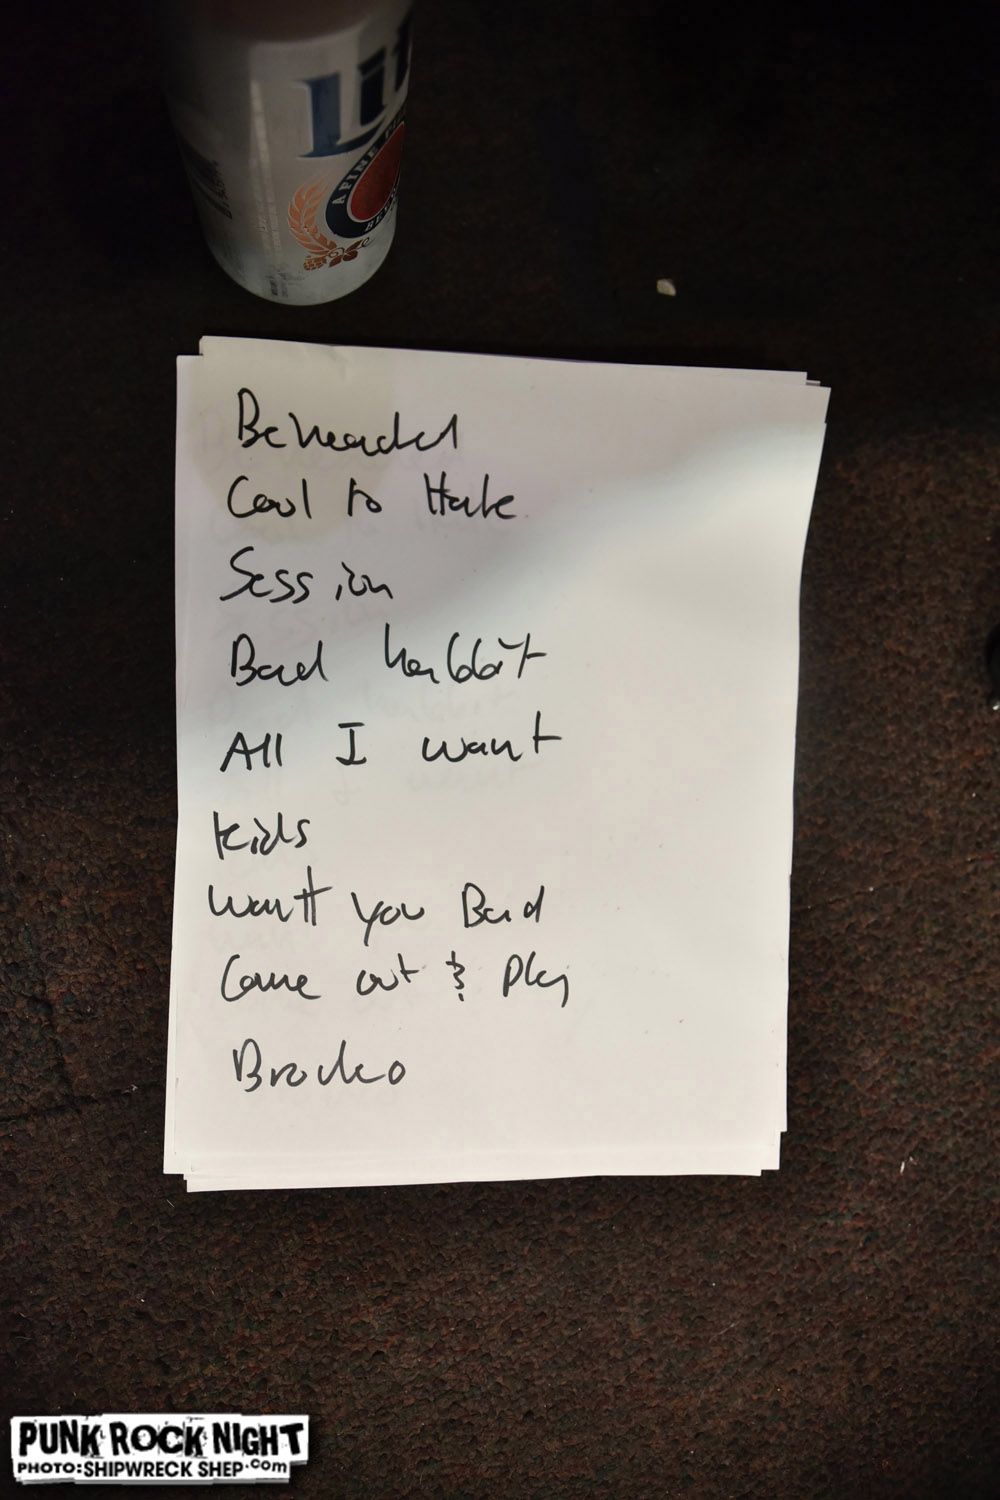 Lit
A FINE
Beheaded
Cool to Hate
Session
Bad habbit
All I want
kids
Want You Bad
Come out & Play
PUNK ROCK NIGHT
PHOTO:SHIPWRECK SHEP.com